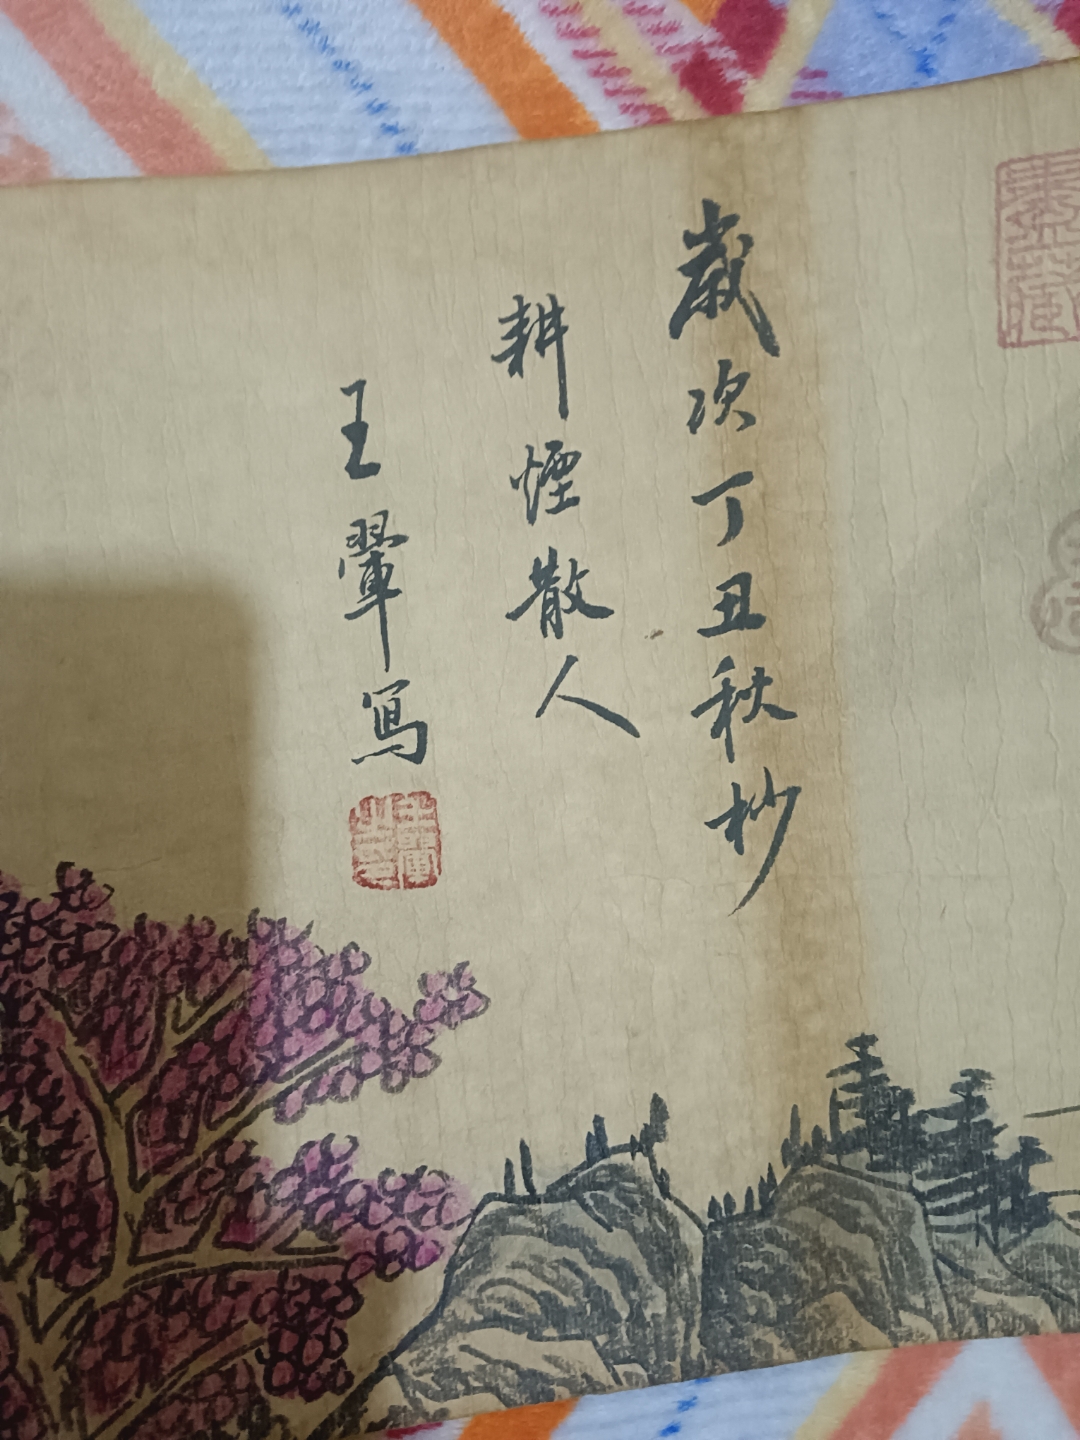 歲次丁丑秋杪
耕煙散人
王翬寫